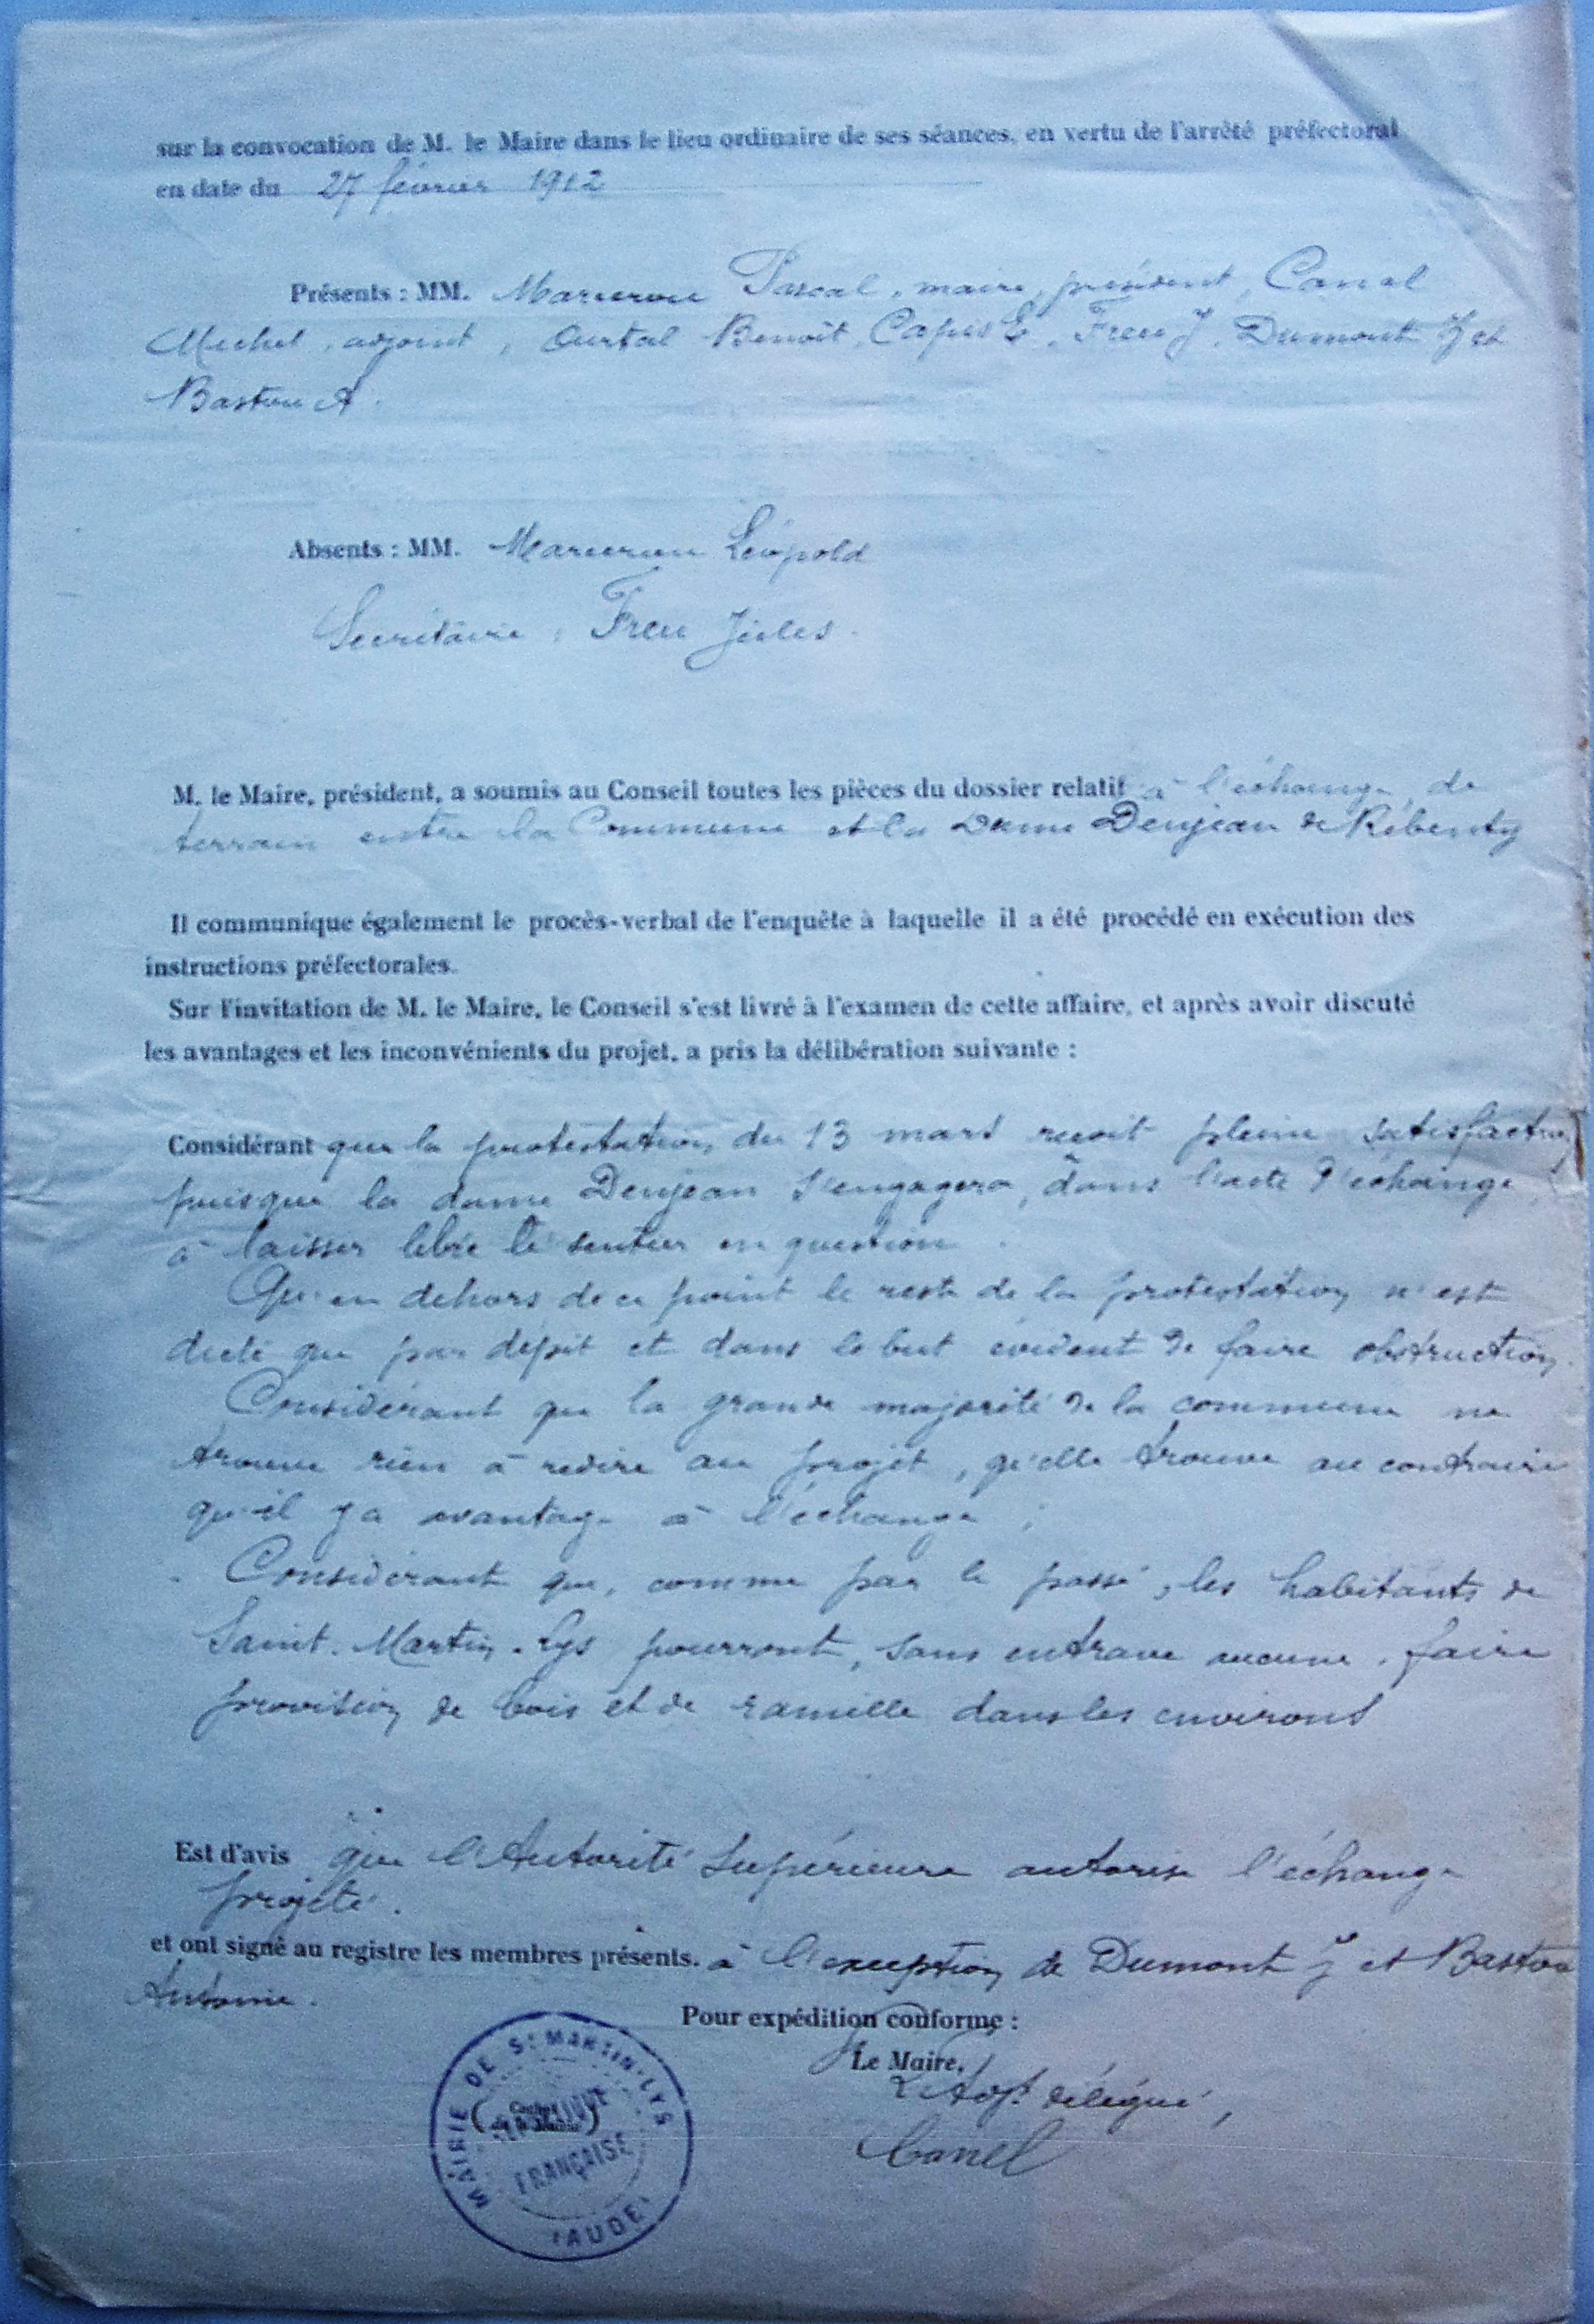 sur la convocation de M. le Maire dans le lieu ordinaire de ses séances, en vertu de l'arrêté préfectoral
en date du 27 février 1912
Présents : MM. Pascal, maire, président, Canal
Michel, adjoint, Benoît, Capus E, Freu J, Dumont J et
Bastou A.
Absents : MM. Léopold
Secrétaire : Freu Jules.
M. le Maire, président, a soumis au Conseil toutes les pièces du dossier relatif à l'échange de
terrain entre la Commune et la Dame Denjean de Rébenty
Il communique également le procès-verbal de l'enquête à laquelle il a été procédé en exécution des
instructions préfectorales.
Sur l'invitation de M. le Maire, le Conseil s'est livré à l'examen de cette affaire, et après avoir discuté
les avantages et les inconvénients du projet, a pris la délibération suivante :
Considérant que la protestation du 13 mars reçoit pleine satisfaction
puisque la dame Denjean s'engagera, dans l'acte d'échange,
à laisser libre le sentier en question.
Qu'en dehors de ce point le reste de la protestation n'est
dicté que par dépit et dans le but évident de faire obstruction.
Considérant que la grande majorité de la commune ne
trouve rien à redire au projet, qu'elle trouve au contraire
qu'il y a avantage à l'échange ;
Considérant que, comme par le passé, les habitants de
Saint-Martin-Lys pourront, sans entrave aucune, faire
provision de bois et de ramille dans les environs
Est d'avis que l'Autorité Supérieure autorise l'échange
projeté.
et ont signé au registre les membres présents. à l'exception de Dumont J et Bastou
Antoine.
Pour expédition conforme :
Le Maire,
L'Adjt délégué,
Canel
MAIRIE DE St MARTIN-LYS
(Cachet de la Mairie)
RÉPUBLIQUE
FRANÇAISE
(AUDE)